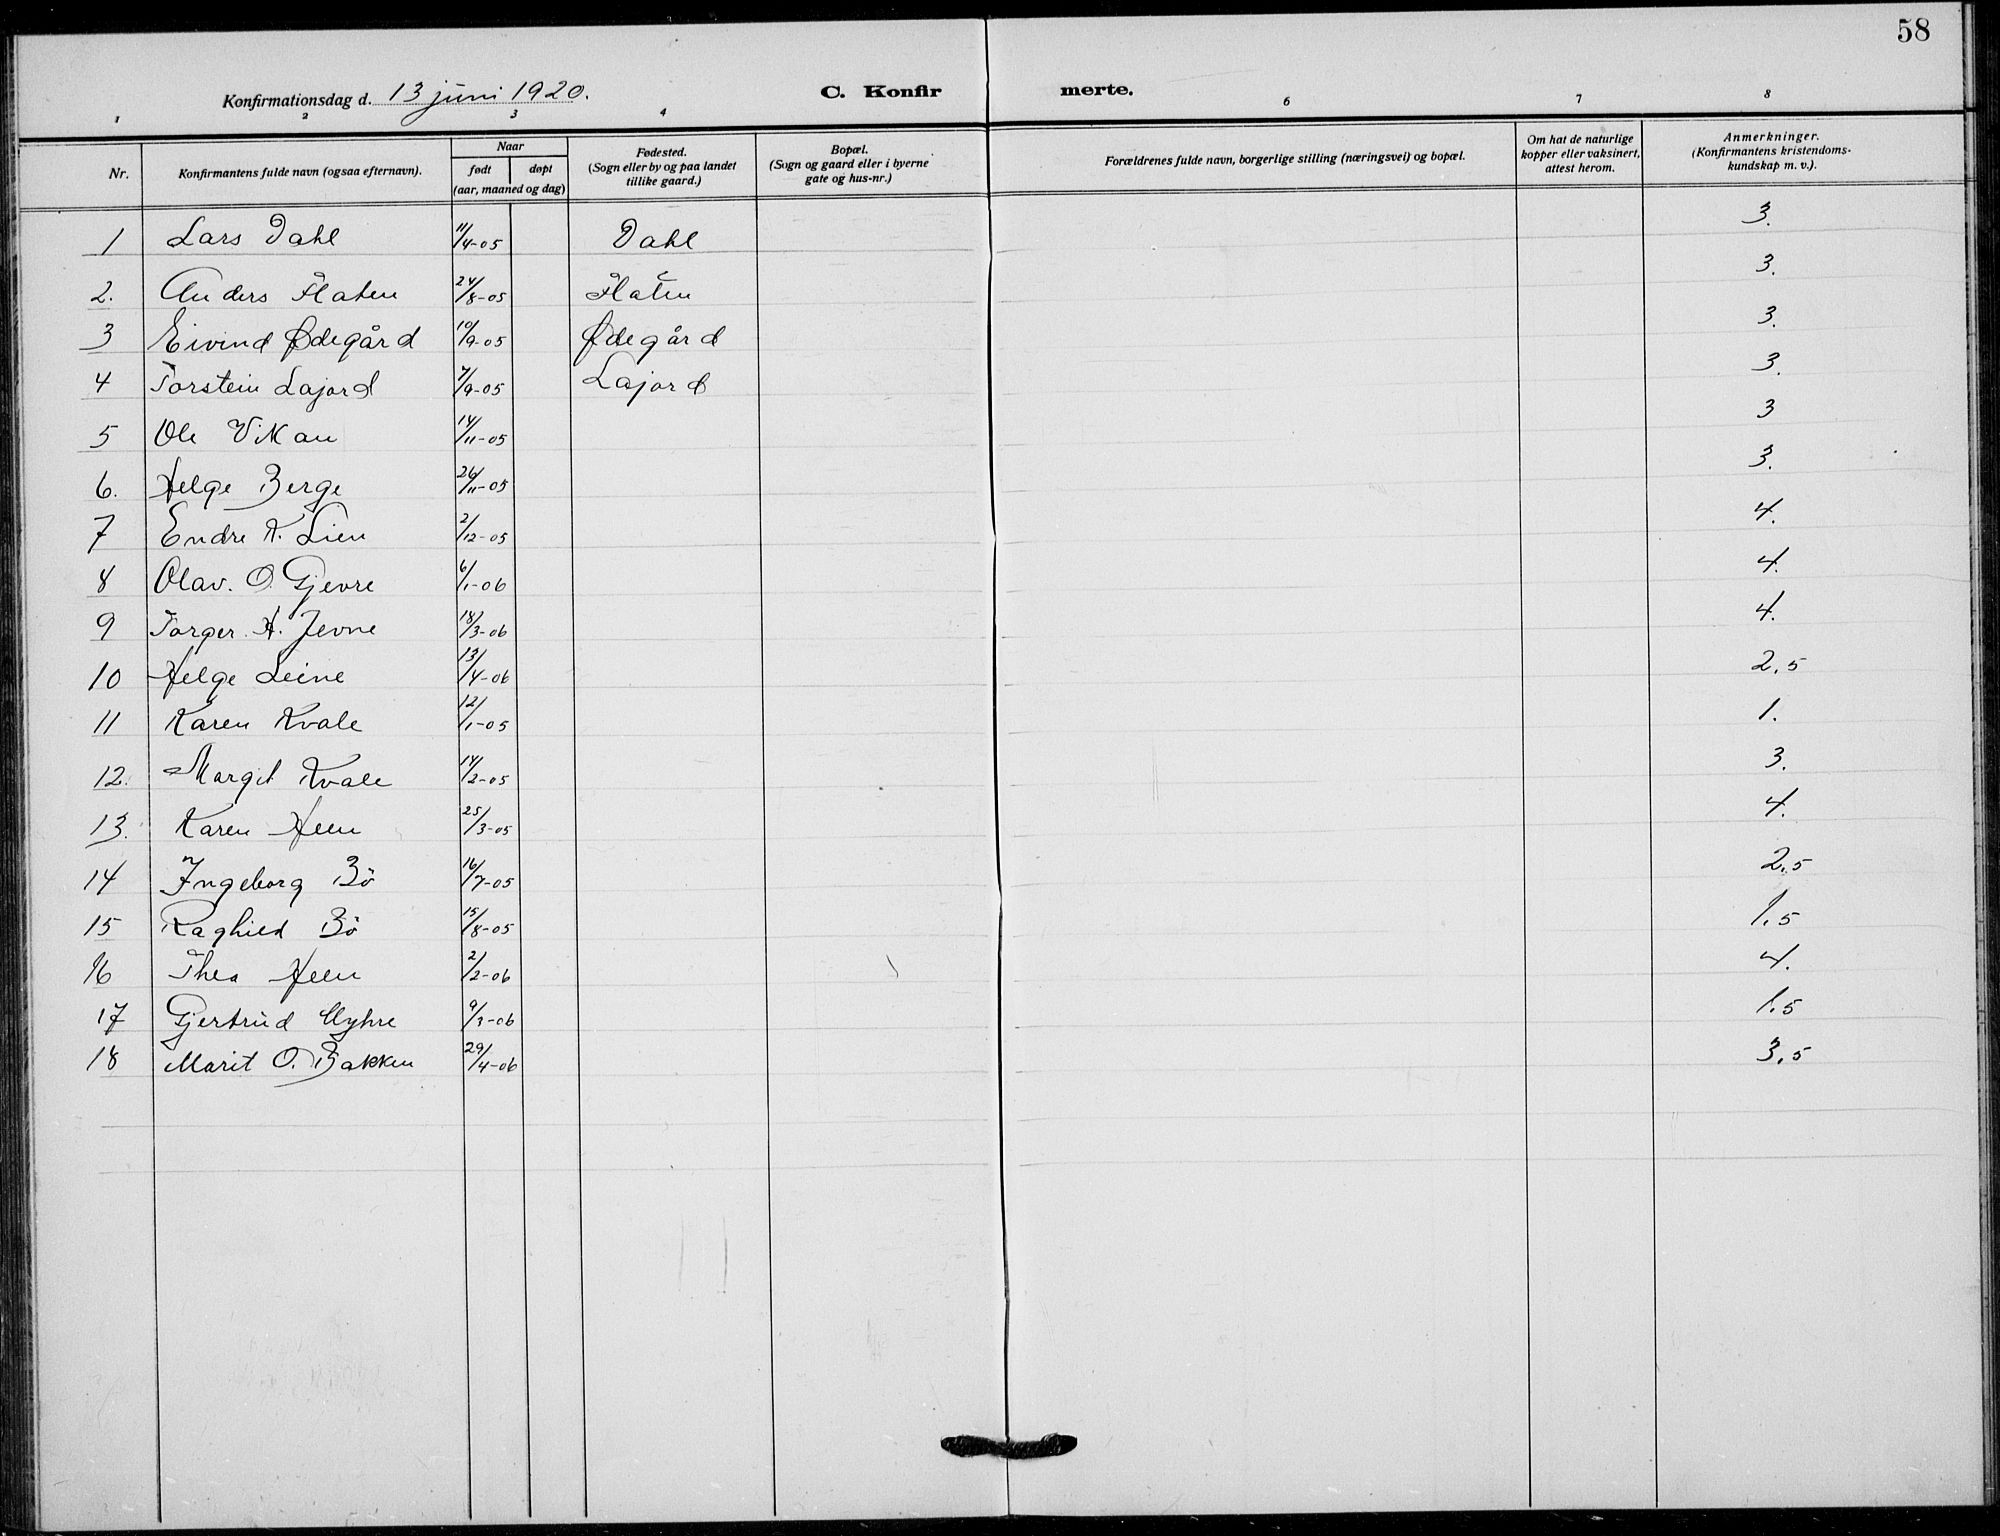 58
Konfirmationsdag d. 13 juni 1920. C. Konfir merte.
1 2 3 4 6 7 8
Nr. Konfirmantens fulde navn (ogsaa efternavn). Naar født døpt (aar, maaned og dag) Fødested. (Sogn eller by og paa landet tillike gaard.) Bopæl. (Sogn og gaard eller i byerne gate og hus-nr.) Forældrenes fulde navn, borgerlige stilling (næringsvei) og bopæl. Om hat de naturlige kopper eller vaksinert, attest herom. Anmerkninger. (Konfirmantens kristendoms-kundskap m. v.).
1 Lars Dahl 11/4-05 Dahl 3.
2. Anders Flaten 24/8-05 Flaten 3.
3 Eivind Ødegård 10/9-05 Ødegård 3.
4 Torstein Lajord 7/9-05 Lajord 3.
5 Ole Vikan 14/11-05 3
6. Helge Berge 26/11-05 3.
7 Endre K. Lien 2/12-05 4.
8 Olav. O. Gjevre 6/1-06 4.
9 Torger. H. Jevne 18/3-06 4.
10 Helge Leine 13/4-06 2,5
11 Karen Kvale 12/1-05 1.
12. Margit Kvale 14/2-05 3.
13. Karen Heen 25/3-05 4.
14 Ingeborg Bö 16/7-05 2,5
15 Raghild Bö 15/8-05 1,5
16 Thea Heen 2/2-06 4.
17 Gjertrud Myhre 9/3-06 1,5
18 Marit O. Bakken 29/4-06 3,5